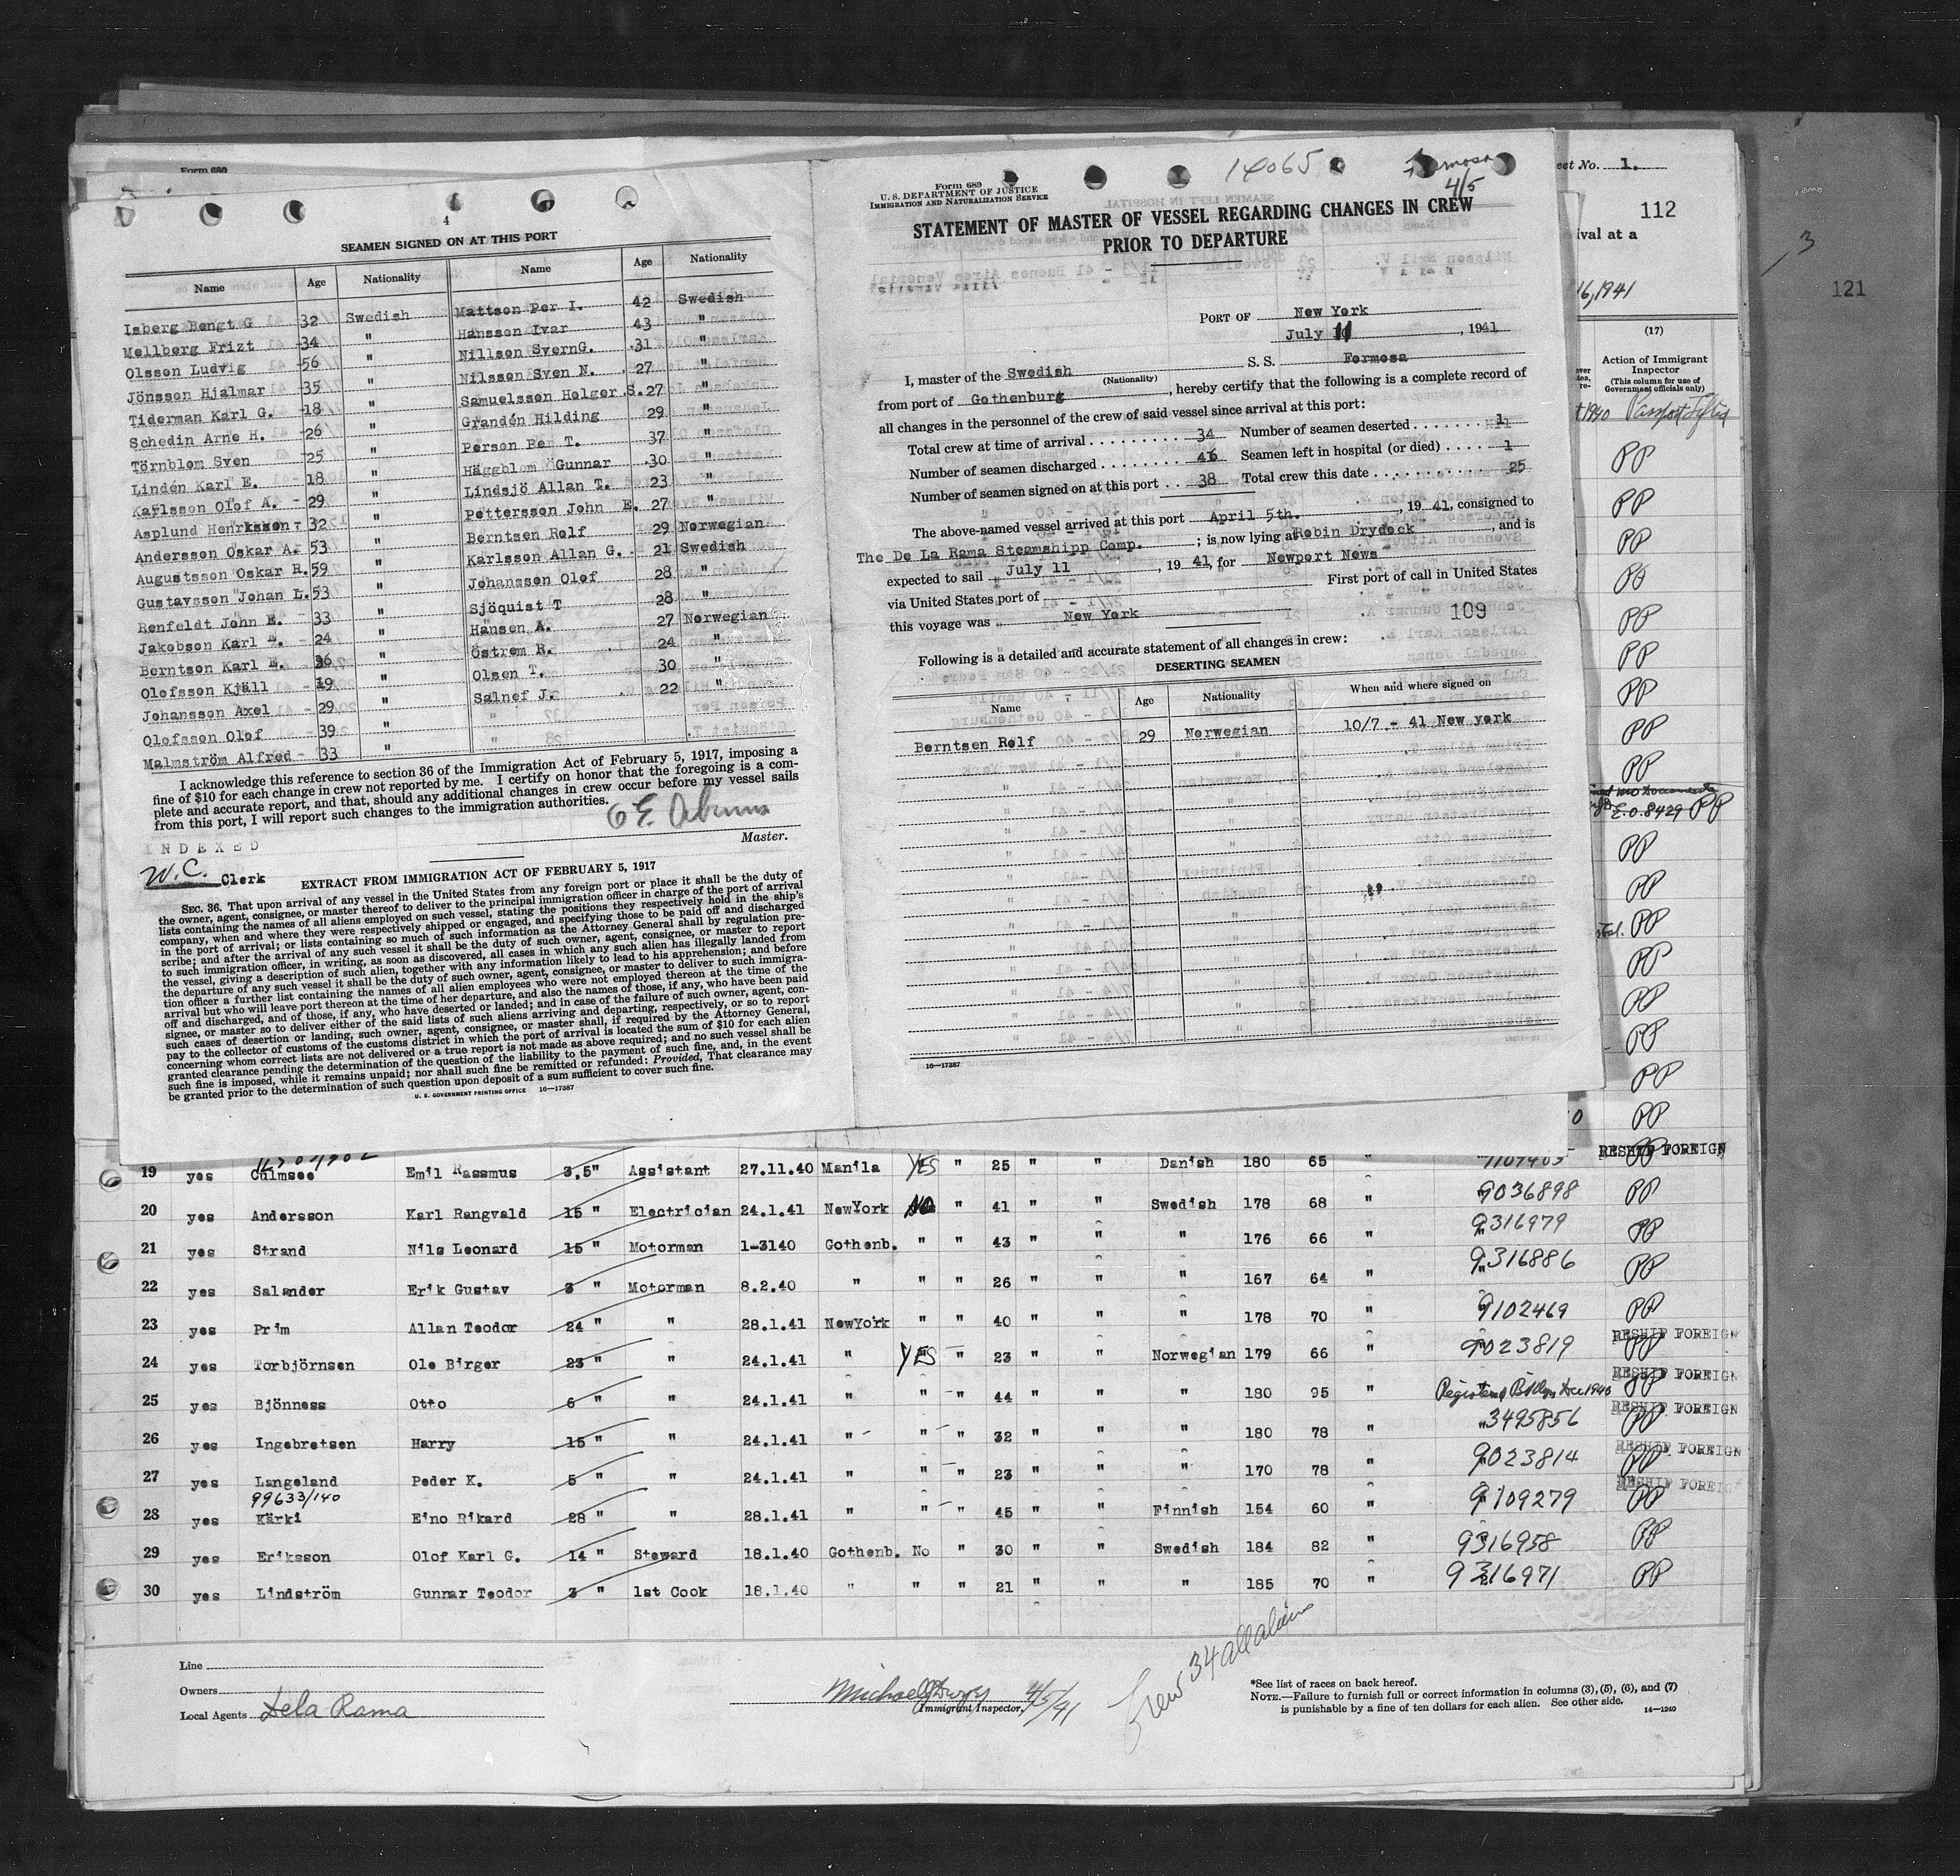 Form 689
4
SEAMEN SIGNED ON AT THIS PORT
Name Age Nationality Name Age Nationality
Isberg Bengt G 32 Swedish Mattson Per I. 42 Swedish
Mellberg Frizt 34 " Hansson Ivar 43 "
Olsson Ludvig 56 " Nillson SvernG. 31 "
Jönsson Hjalmar 35 " Nilsson Sven N. 27 "
Tiderman Karl G. 18 " Samuelsson Holger S. 27 "
Schedin Arne H. 26 " Grandén Hilding 29 "
Törnblom Sven 25 " Person Per T. 37 "
Lindén Karl E. 18 " Häggblom Gunnar 30 "
Karlsson Olof A. 29 " Lindsjö Allan T. 23 "
Asplund Henrksson 32 " Pettersson John E. 27 "
Andersson Oskar A. 53 " Berntsen Rolf 29 Norwegian
Augustsson Oskar R. 59 " Karlsson Allan G. 21 Swedish
Gustavsson Johan L. 53 " Johansson Olof 28 "
Renfeldt John E. 33 " Sjöquist T 28 "
Jakobson Karl 24 " Hansen A. 27 Norwegian
Berntson Karl E. 36 " Östrem R. 24 "
Olofsson Kjäll 19 " Olsen T. 30 "
Johansson Axel 29 " Salnef J. 22 "
Olofsson Olof 39 "
Malmström Alfred 33 "
I acknowledge this reference to section 36 of the Immigration Act of February 5, 1917, imposing a
fine of $10 for each change in crew not reported by me. I certify on honor that the foregoing is a com-
plete and accurate report, and that, should any additional changes in crew occur before my vessel sails
from this port, I will report such changes to the immigration authorities.
Master.
INDEXED
W.C. Clerk
EXTRACT FROM IMMIGRATION ACT OF FEBRUARY 5, 1917
SEC. 36. That upon arrival of any vessel in the United States from any foreign port or place it shall be the duty of
the owner, agent, consignee, or master thereof to deliver to the principal immigration officer in charge of the port of arrival
lists containing the names of all aliens employed on such vessel, stating the positions they respectively hold in the ship's
company, when and where they were respectively shipped or engaged, and specifying those to be paid off and discharged
in the port of arrival; or lists containing so much of such information as the Attorney General shall by regulation pre-
scribe; and after the arrival of any such vessel it shall be the duty of such owner, agent, consignee, or master to report
to such immigration officer, in writing, as soon as discovered, all cases in which any such alien has illegally landed from
the vessel, giving a description of such alien, together with any information likely to lead to his apprehension; and before
the departure of any such vessel it shall be the duty of such owner, agent, consignee, or master to deliver to such immigra-
tion officer a further list containing the names of all alien employees who were not employed thereon at the time of the
arrival but who will leave port thereon at the time of her departure, and also the names of those, if any, who have been paid
off and discharged, and of those, if any, who have deserted or landed; and in case of the failure of such owner, agent, con-
signee, or master so to deliver either of the said lists of such aliens arriving and departing, respectively, or so to report
such cases of desertion or landing, such owner, agent, consignee, or master shall, if required by the Attorney General,
pay to the collector of customs of the customs district in which the port of arrival is located the sum of $10 for each alien
concerning whom correct lists are not delivered or a true report is not made as above required; and no such vessel shall be
granted clearance pending the determination of the question of the liability to the payment of such fine, and, in the event
such fine is imposed, while it remains unpaid; nor shall such fine be remitted or refunded: Provided, That clearance may
be granted prior to the determination of such question upon deposit of a sum sufficient to cover such fine.
U. S. GOVERNMENT PRINTING OFFICE 16—17387
14065 Formosa
4/5
Form 689
U. S. DEPARTMENT OF JUSTICE
IMMIGRATION AND NATURALIZATION SERVICE
STATEMENT OF MASTER OF VESSEL REGARDING CHANGES IN CREW
PRIOR TO DEPARTURE
PORT OF New York
July 11, 1941
I, master of the Swedish S. S. Formosa
(Nationality)
from port of Gothenburg, hereby certify that the following is a complete record of
all changes in the personnel of the crew of said vessel since arrival at this port:
Total crew at time of arrival 34 Number of seamen deserted 1
Number of seamen discharged 46 Seamen left in hospital (or died) 1
Number of seamen signed on at this port 38 Total crew this date 25
The above-named vessel arrived at this port April 5th., 1941, consigned to
The De La Rama Steamshipp Comp.; is now lying at Robin Drydock, and is
expected to sail July 11, 1941, for Newport News
via United States port of First port of call in United States
this voyage was New York
109
Following is a detailed and accurate statement of all changes in crew:
DESERTING SEAMEN
Name Age Nationality When and where signed on
Berntsen Rolf 29 Norwegian 10/7 - 41 New york
16—17387
eet No. 1.
112
ival at a
16, 1941
(17)
Action of Immigrant
Inspector
(This column for use of
Government officials only)
1940
PP
PP
PP
PP
PP
PP
PP
PP
E.O. 8429 PP
PP
PP
PP
PP
PP
PP
PP
PP
3
121
19 yes Culmsee Emil Rassmus 3,5" Assistant 27.11.40 Manila YES " 25 " " Danish 180 65 " RESHIP FOREIGN
20 yes Andersson Karl Rangvald 15 " Electrician 24.1.41 NewYork No " 41 " " Swedish 178 68 " 9036898 PP
21 yes Strand Nils Leonard 15 " Motorman 1-3140 Gothenb. " " 43 " " " 176 66 " 9316979 PP
22 yes Salander Erik Gustav 3 " Motorman 8.2.40 " " " 26 " " " 167 64 " 9316886 PP
23 yes Prim Allan Teodor 24 " " 28.1.41 NewYork " " 40 " " " 178 70 " 9102469 PP
24 yes Torbjörnsen Ole Birger 23 " " 24.1.41 " YES " 23 " " Norwegian 179 66 " 9023819 PP RESHIP FOREIGN
25 yes Bjönness Otto 6 " " 24.1.41 " " " 44 " " " 180 95 " Registered Bklyn Dec 1940 PP RESHIP FOREIGN
26 yes Ingebretsen Harry 15 " " 24.1.41 " " " 32 " " " 180 78 " 3495856 PP RESHIP FOREIGN
27 yes Langeland Peder K. 5 " " 24.1.41 " " " 23 " " " 170 78 " 9023814 PP RESHIP FOREIGN
99633/140
28 yes Kärki Eino Rikard 28 " " 28.1.41 " " " 45 " " Finnish 154 60 " 9109279 PP RESHIP FOREIGN
29 yes Eriksson Olof Karl G. 14 " Steward 18.1.40 Gothenb. No " 30 " " Swedish 184 82 " 9316958 PP
30 yes Lindström Gunnar Teodor 3 " 1st Cook 18.1.40 " " " 21 " " " 185 70 " 9316971 PP
Crew 34 all aliens
Line
Owners
Local Agents Dela Rama
Michael 4/5/41
Immigrant Inspector.
*See list of races on back hereof.
NOTE.—Failure to furnish full or correct information in columns (3), (5), (6), and (7)
is punishable by a fine of ten dollars for each alien. See other side.
14—1240